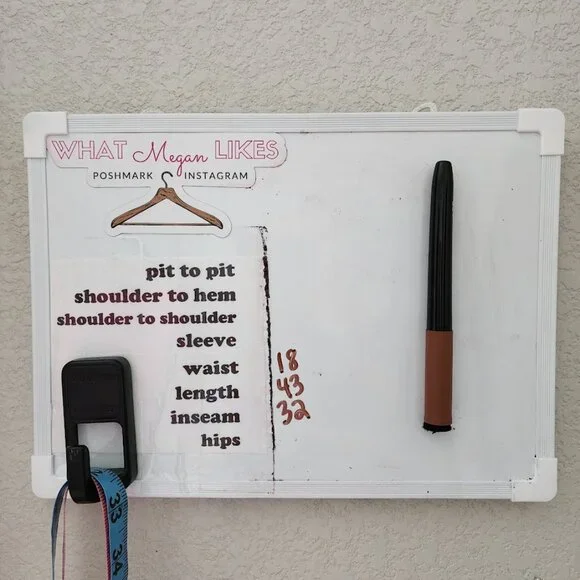 WHAT Megan LIKES
POSHMARK INSTAGRAM
pit to pit
shoulder to hem
shoulder to shoulder
sleeve
waist 18
length 43
inseam 32
hips
33
34